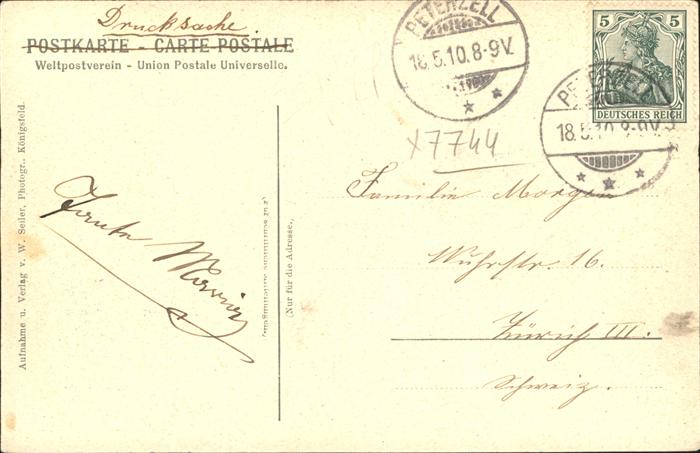 Drucksache.
POSTKARTE - CARTE POSTALE
Weltpostverein - Union Postale Universelle.
PETERZELL
18.5.10.8-9V.
5 5
DEUTSCHES REICH
PETERZELL
18.5.10.8-9V.
x7744
Familie Morgen
Wuhrstr. 16.
Zürich III.
Schweiz.
(Nur für die Adresse.)
Aufnahme u. Verlag v. W. Seiler, Photogr., Königsfeld.